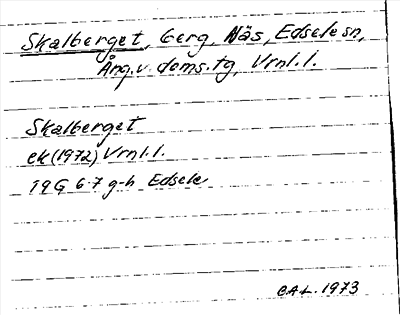 Skalberget, berg, Näs, Edsele sn,
Ång.v. doms.tg, Vrnl.l.
Skalberget
ek (1972) Vrnl.l.
19G 6-7 g-h Edsele
CAL. 1973